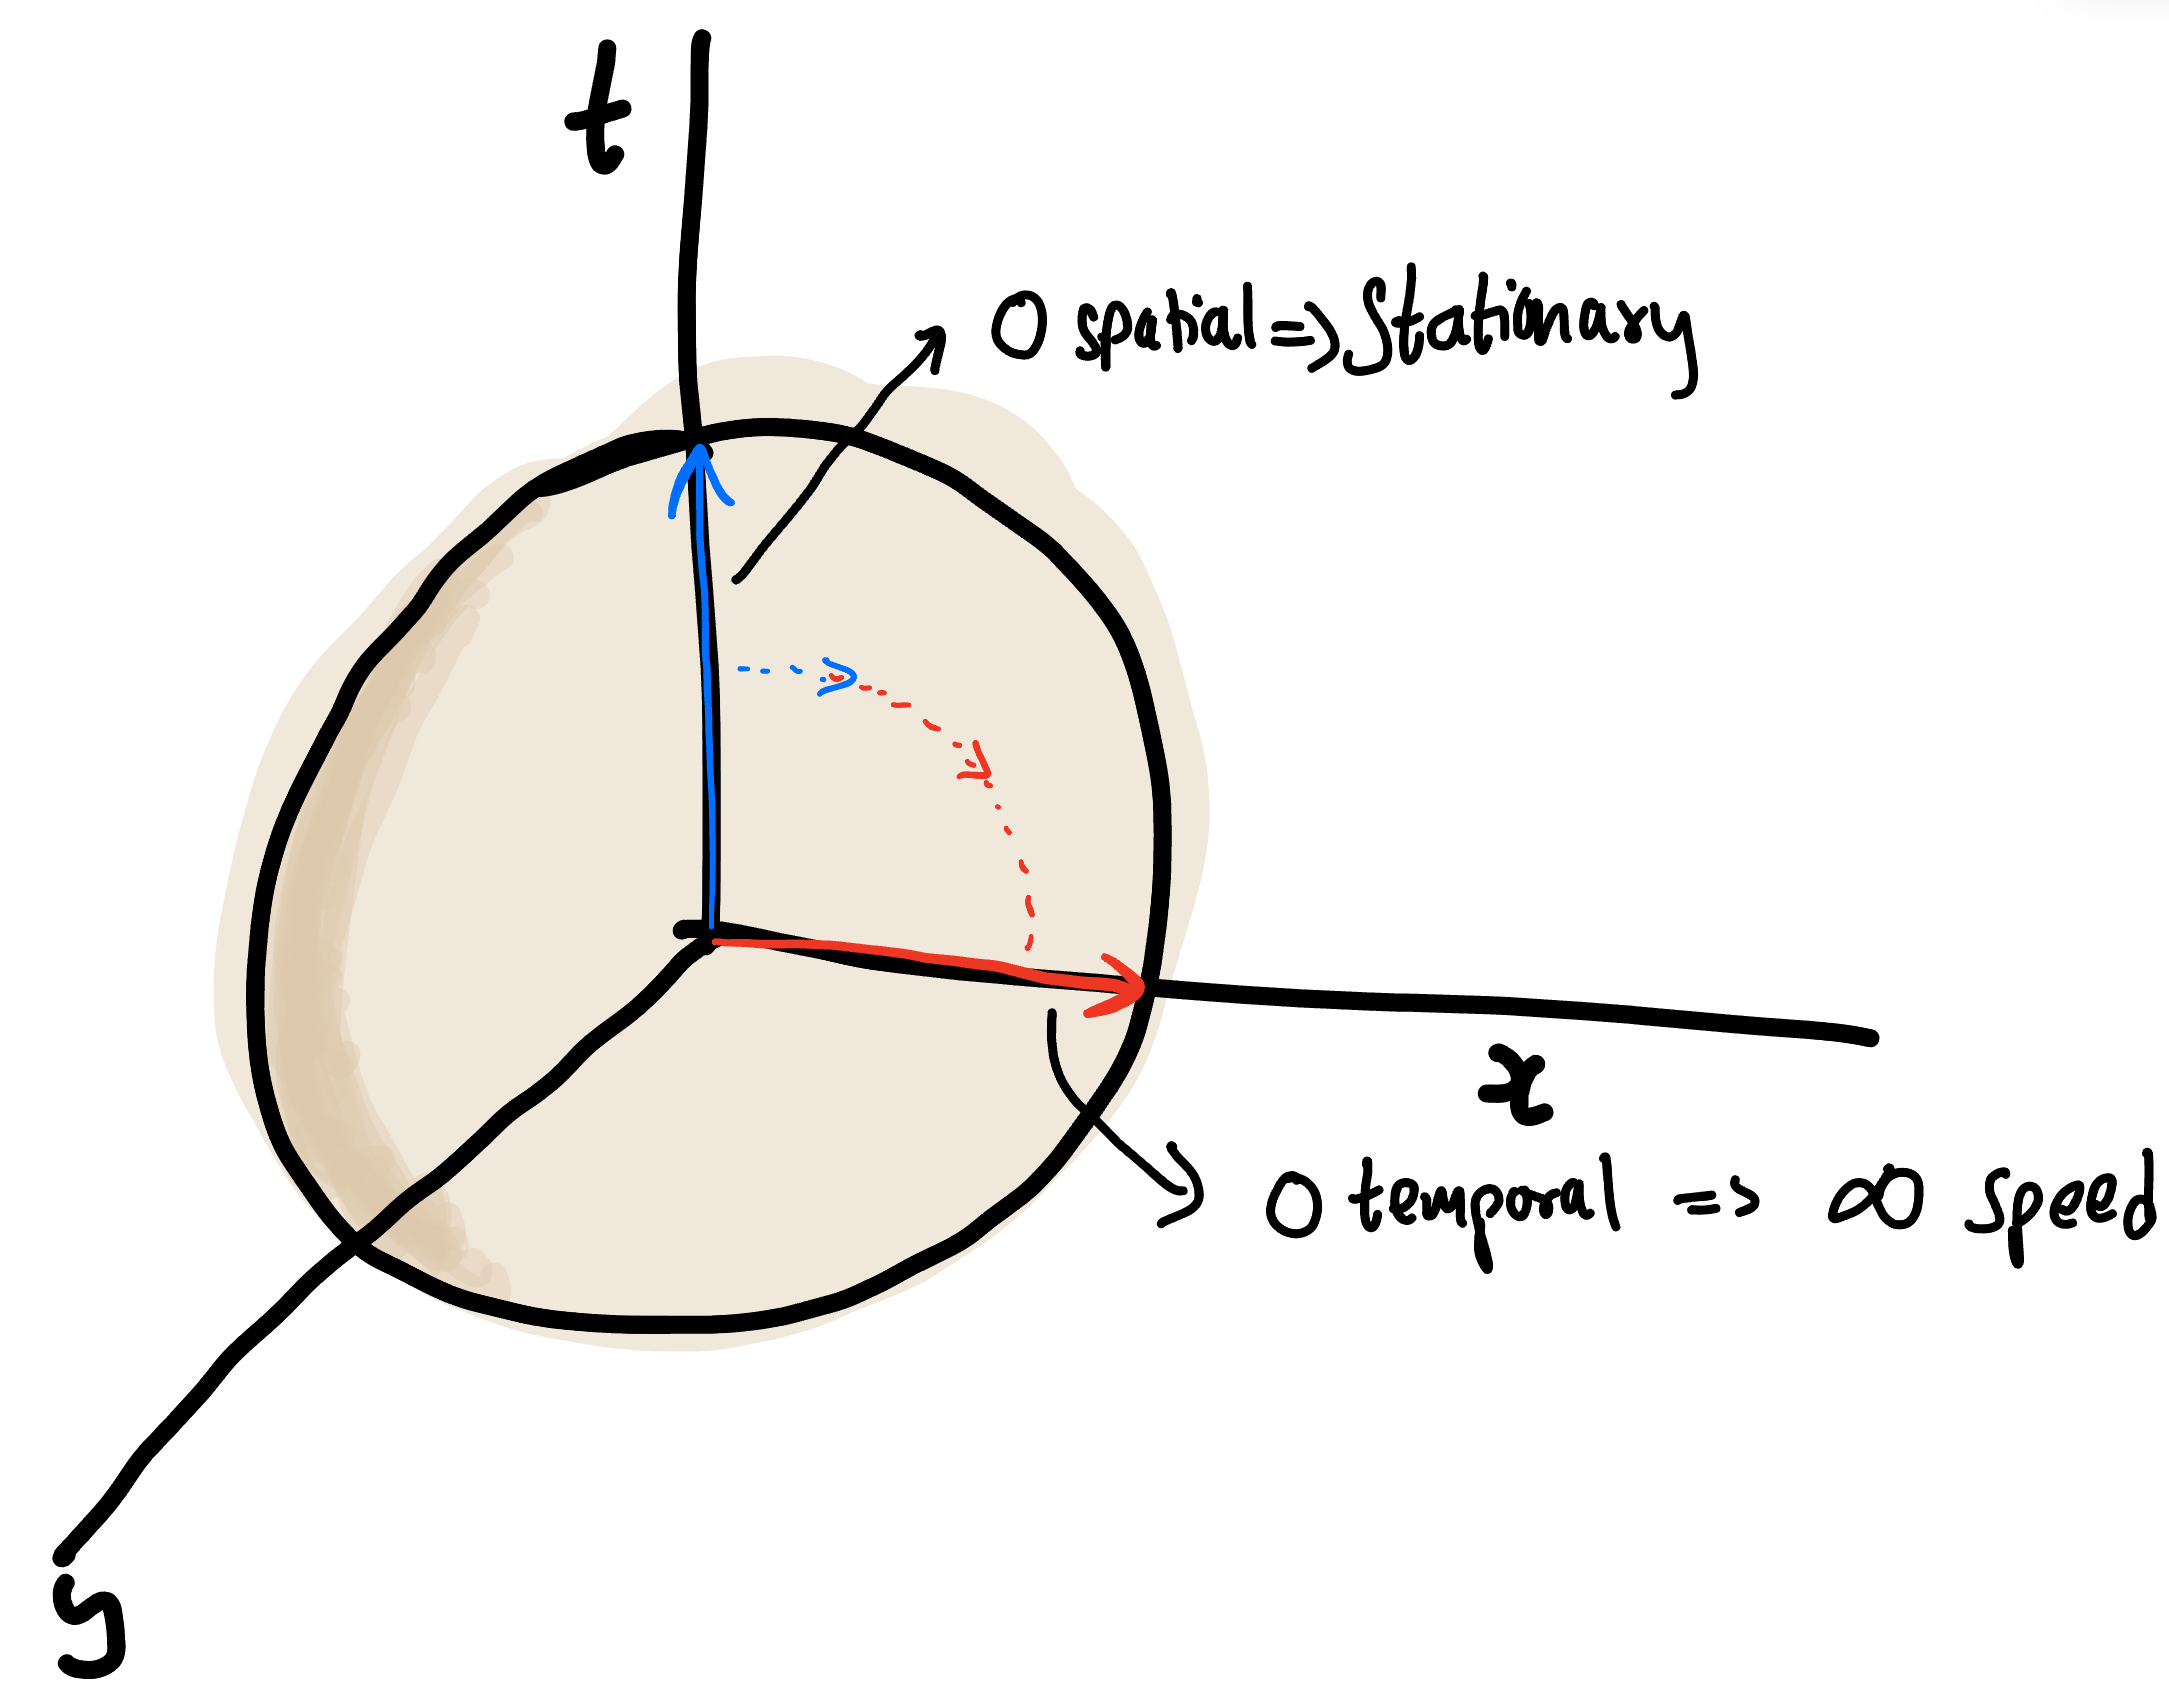 t
0 spatial => Stationary
x
0 temporal => ∞ speed
y